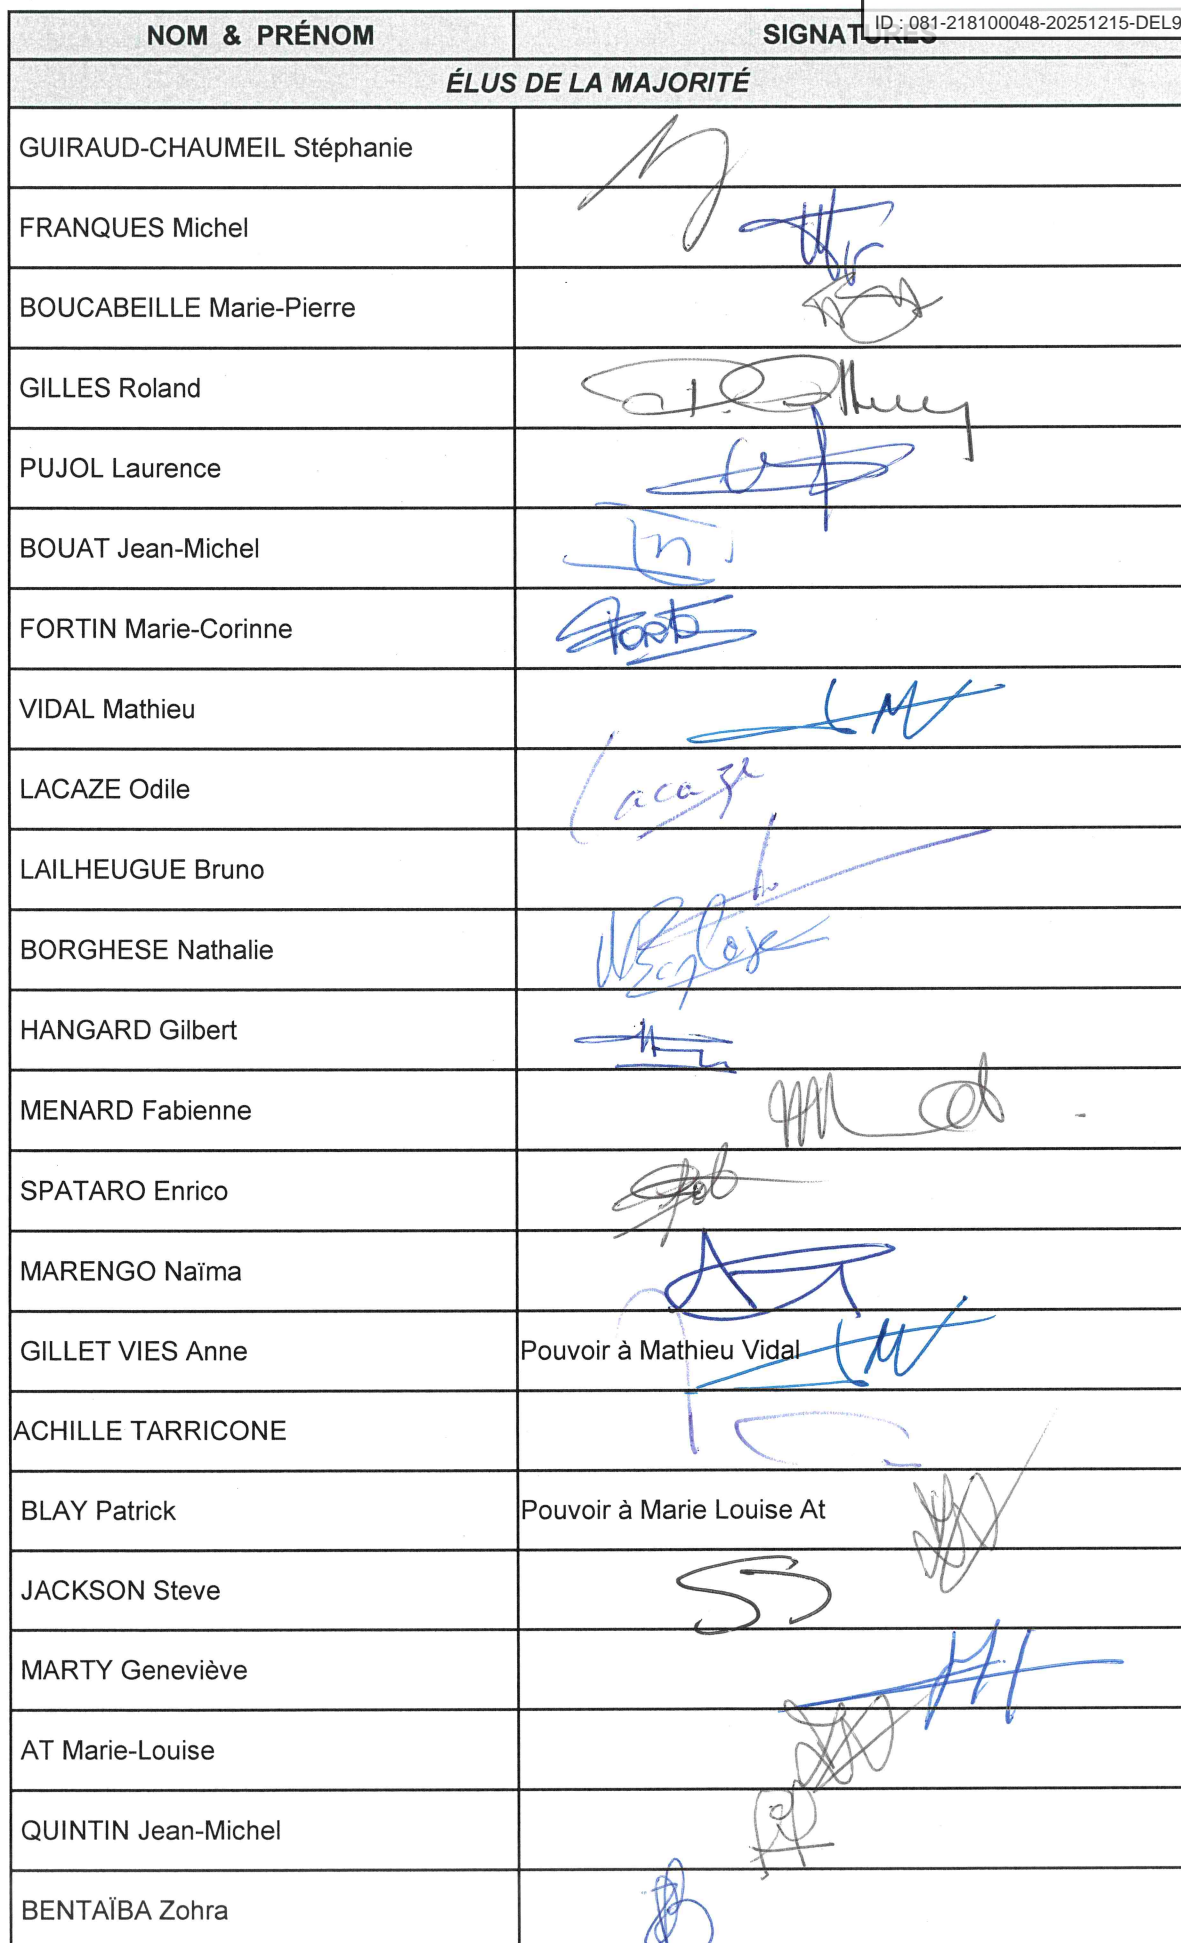 ID : 081-218100048-20251215-DEL9
NOM & PRÉNOM SIGNATURES
ÉLUS DE LA MAJORITÉ
GUIRAUD-CHAUMEIL Stéphanie
FRANQUES Michel
BOUCABEILLE Marie-Pierre
GILLES Roland
PUJOL Laurence
BOUAT Jean-Michel
FORTIN Marie-Corinne
VIDAL Mathieu
LACAZE Odile Lacaze
LAILHEUGUE Bruno
BORGHESE Nathalie
HANGARD Gilbert
MENARD Fabienne
SPATARO Enrico
MARENGO Naïma
GILLET VIES Anne Pouvoir à Mathieu Vidal
ACHILLE TARRICONE
BLAY Patrick Pouvoir à Marie Louise At
JACKSON Steve
MARTY Geneviève
AT Marie-Louise
QUINTIN Jean-Michel
BENTAÏBA Zohra